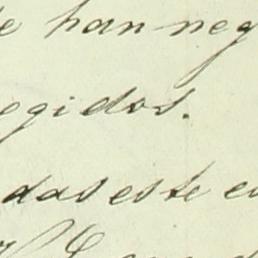 han neg
egidos.
das este e